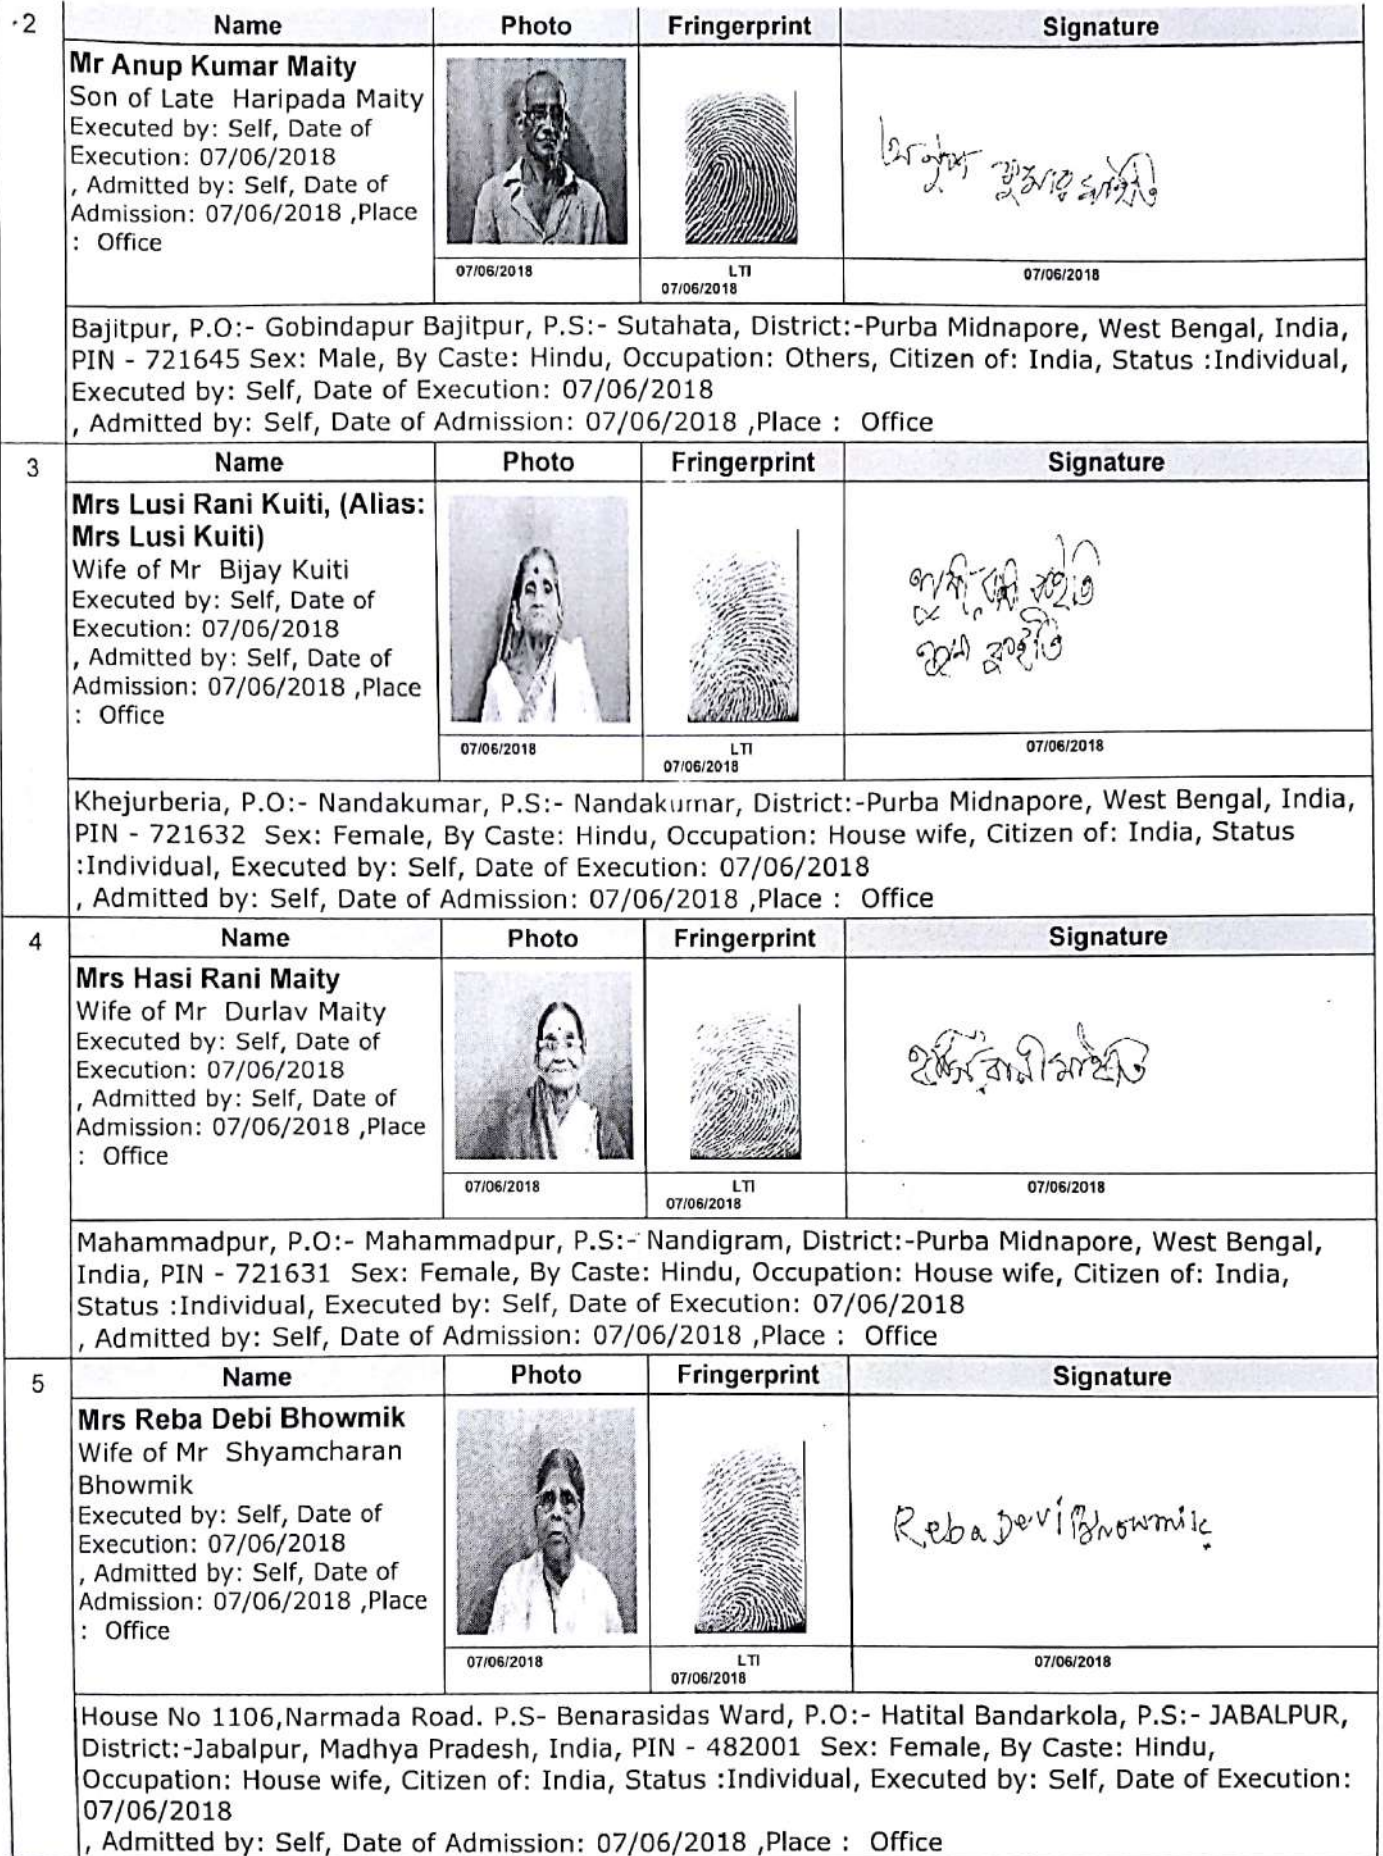 2
Name Photo Fringerprint Signature
Mr Anup Kumar Maity
Son of Late Haripada Maity
Executed by: Self, Date of
Execution: 07/06/2018
, Admitted by: Self, Date of
Admission: 07/06/2018 ,Place
: Office
অনুপ কুমার মাইতি
07/06/2018 LTI 07/06/2018
07/06/2018
Bajitpur, P.O:- Gobindapur Bajitpur, P.S:- Sutahata, District:-Purba Midnapore, West Bengal, India,
PIN - 721645 Sex: Male, By Caste: Hindu, Occupation: Others, Citizen of: India, Status :Individual,
Executed by: Self, Date of Execution: 07/06/2018
, Admitted by: Self, Date of Admission: 07/06/2018 ,Place : Office
3
Name Photo Fringerprint Signature
Mrs Lusi Rani Kuiti, (Alias:
Mrs Lusi Kuiti)
Wife of Mr Bijay Kuiti
Executed by: Self, Date of
Execution: 07/06/2018
, Admitted by: Self, Date of
Admission: 07/06/2018 ,Place
: Office
কুইতি
07/06/2018 LTI 07/06/2018
07/06/2018
Khejurberia, P.O:- Nandakumar, P.S:- Nandakumar, District:-Purba Midnapore, West Bengal, India,
PIN - 721632 Sex: Female, By Caste: Hindu, Occupation: House wife, Citizen of: India, Status
:Individual, Executed by: Self, Date of Execution: 07/06/2018
, Admitted by: Self, Date of Admission: 07/06/2018 ,Place : Office
4
Name Photo Fringerprint Signature
Mrs Hasi Rani Maity
Wife of Mr Durlav Maity
Executed by: Self, Date of
Execution: 07/06/2018
, Admitted by: Self, Date of
Admission: 07/06/2018 ,Place
: Office
হাসি রানী মাইতি
07/06/2018 LTI 07/06/2018
07/06/2018
Mahammadpur, P.O:- Mahammadpur, P.S:- Nandigram, District:-Purba Midnapore, West Bengal,
India, PIN - 721631 Sex: Female, By Caste: Hindu, Occupation: House wife, Citizen of: India,
Status :Individual, Executed by: Self, Date of Execution: 07/06/2018
, Admitted by: Self, Date of Admission: 07/06/2018 ,Place : Office
5
Name Photo Fringerprint Signature
Mrs Reba Debi Bhowmik
Wife of Mr Shyamcharan
Bhowmik
Executed by: Self, Date of
Execution: 07/06/2018
, Admitted by: Self, Date of
Admission: 07/06/2018 ,Place
: Office
Reba Devi Bhowmik
07/06/2018 LTI 07/06/2018
07/06/2018
House No 1106,Narmada Road. P.S- Benarasidas Ward, P.O:- Hatital Bandarkola, P.S:- JABALPUR,
District:-Jabalpur, Madhya Pradesh, India, PIN - 482001 Sex: Female, By Caste: Hindu,
Occupation: House wife, Citizen of: India, Status :Individual, Executed by: Self, Date of Execution:
07/06/2018
, Admitted by: Self, Date of Admission: 07/06/2018 ,Place : Office